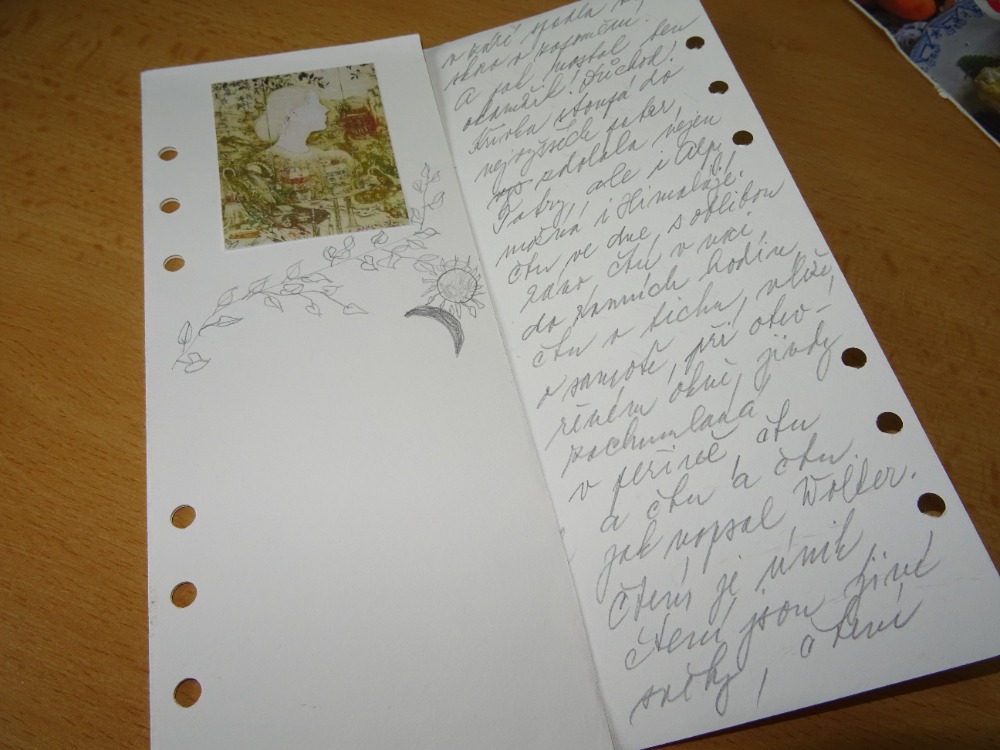 v kádi spadla
okno o kosmické.
A pak nastal ten
okamžik! Důchod!
Křivka stoupá do
nejvyšších pater,
zdolala nejen
Tatry, ale i Alpy
možná i Himaláje!
čtu ve dne, s oblibou
ráno čtu v noci,
do ranních hodin,
čtu v tichu, vleže,
v samotě, při otev-
řeném okně, jindy
zachumlaná
v peřině, čtu
a čtu a čtu.
jak napsal Wolker.
čtení je únik
čtení jsou živé
svátky, čtení